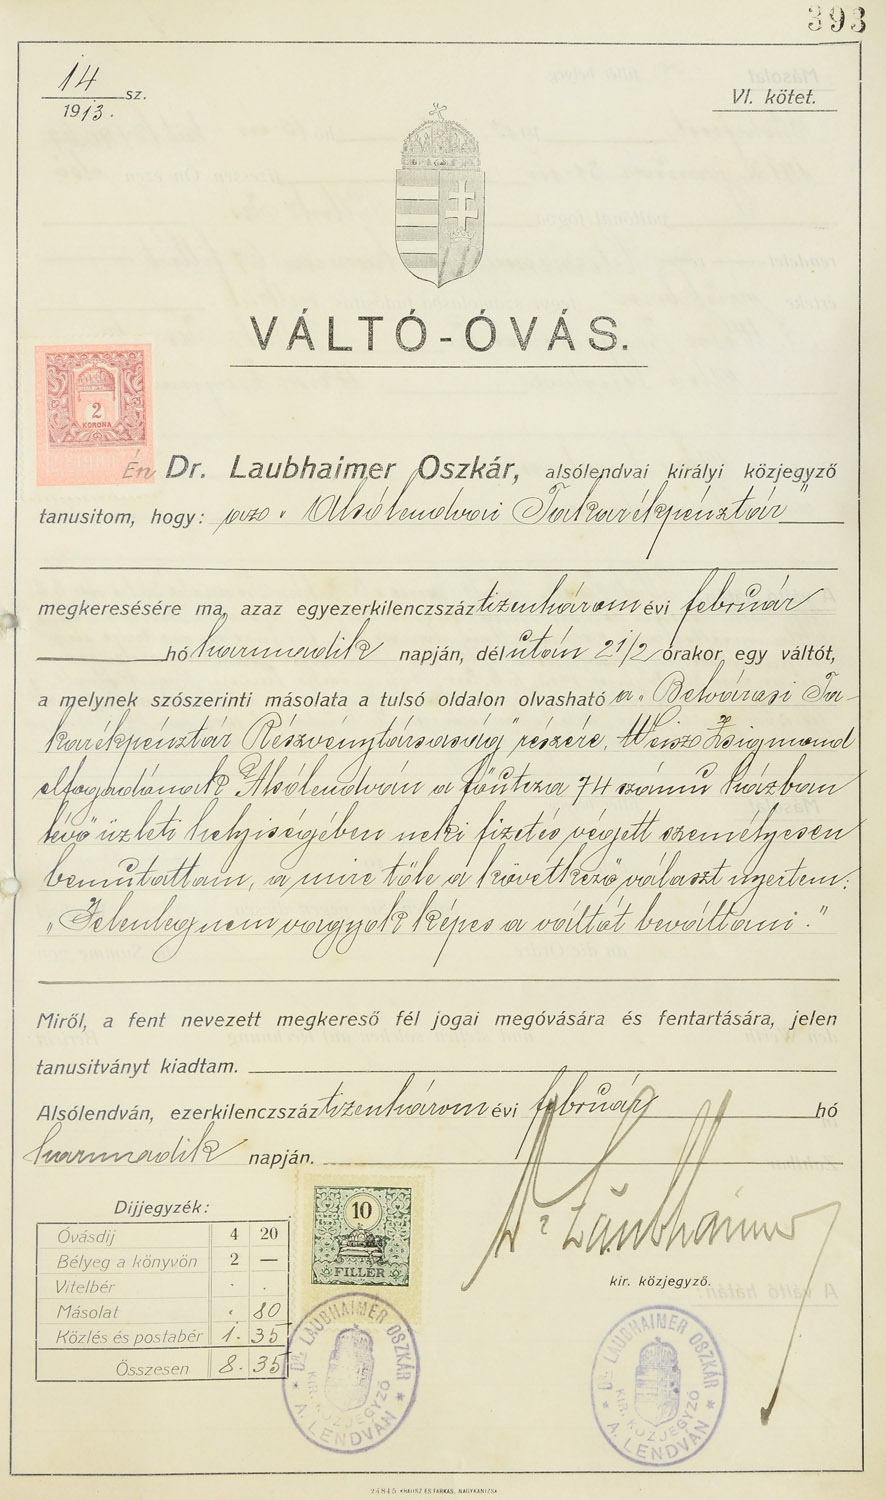 393
14 sz.
1913.
VI. kötet.
VÁLTÓ-ÓVÁS.
2
KORONA
Én Dr. Laubhaimer Oszkár, alsólendvai királyi közjegyző
tanusitom, hogy: az „Alsólendvai Takarékpénztár"
megkeresésére ma, azaz egyezerkilenczszáz tizenhárom évi február
hó harmadik napján, délután 2 1/2 órakor egy váltót,
a melynek szószerinti másolata a tulsó oldalon olvasható a „Belvárosi Ta-
karékpénztár Részvénytársaság" részére, Weisz Zsigmond
elfogadónak Alsólendván a főutcza 74 számu házban
lévő üzleti helyiségében neki fizetés végett személyesen
bemutattam, a mire tőle a következő választ nyertem:
„Jelenleg nem vagyok képes a váltót beváltani."
Miről, a fent nevezett megkereső fél jogai megóvására és fentartására, jelen
tanusitványt kiadtam.
Alsólendván, ezerkilenczszáz tizenhárom évi február hó
harmadik napján.
Dr Laubhaimer
kir. közjegyző.
Dijjegyzék:
Óvásdij 4 20
Bélyeg a könyvön 2 —
Vitelbér . .
Másolat . 80
Közlés és postabér 1. 35
Összesen 8. 35
10
FILLÉR
DR. LAUBHAIMER OSZKÁR
KIR. KÖZJEGYZŐ
* A. LENDVÁN *
DR. LAUBHAIMER OSZKÁR
KIR. KÖZJEGYZŐ
* A. LENDVÁN *
24845 HAUSZ ÉS FARKAS, NAGYKANIZSA